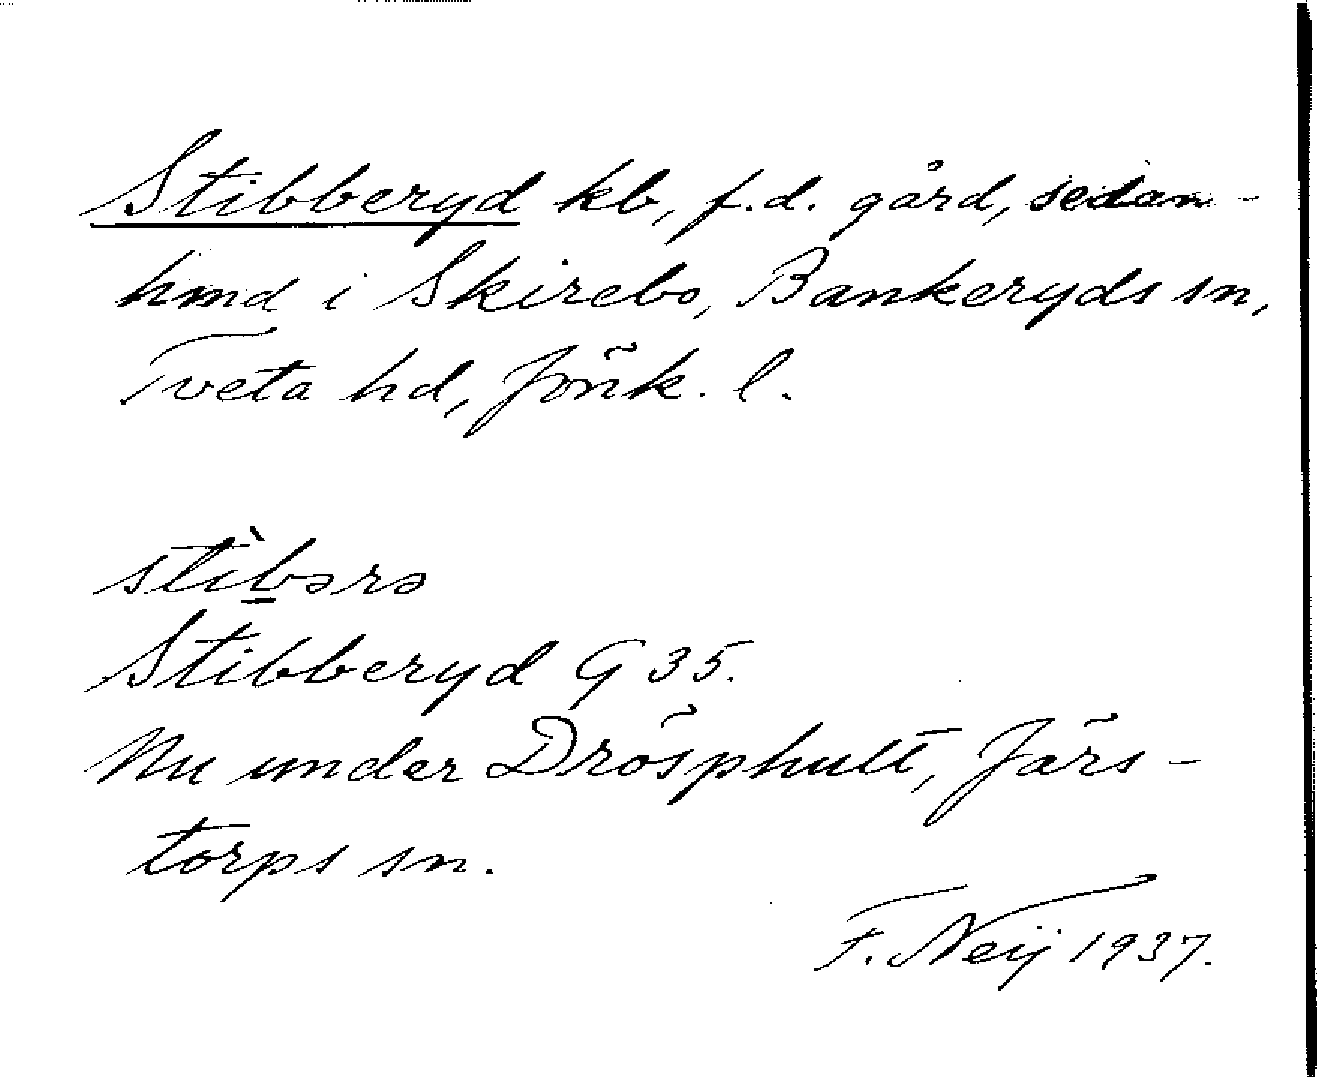 Stibberyd kb, f.d. gård, sedan-
hmd i Skirebo, Bankeryds sn,
Tveta hd, Jönk. l.
stìb̲ərə
Stibberyd G 35.
Nu under Drösphult, Järs-
torps sn.
F. Neij 1937.